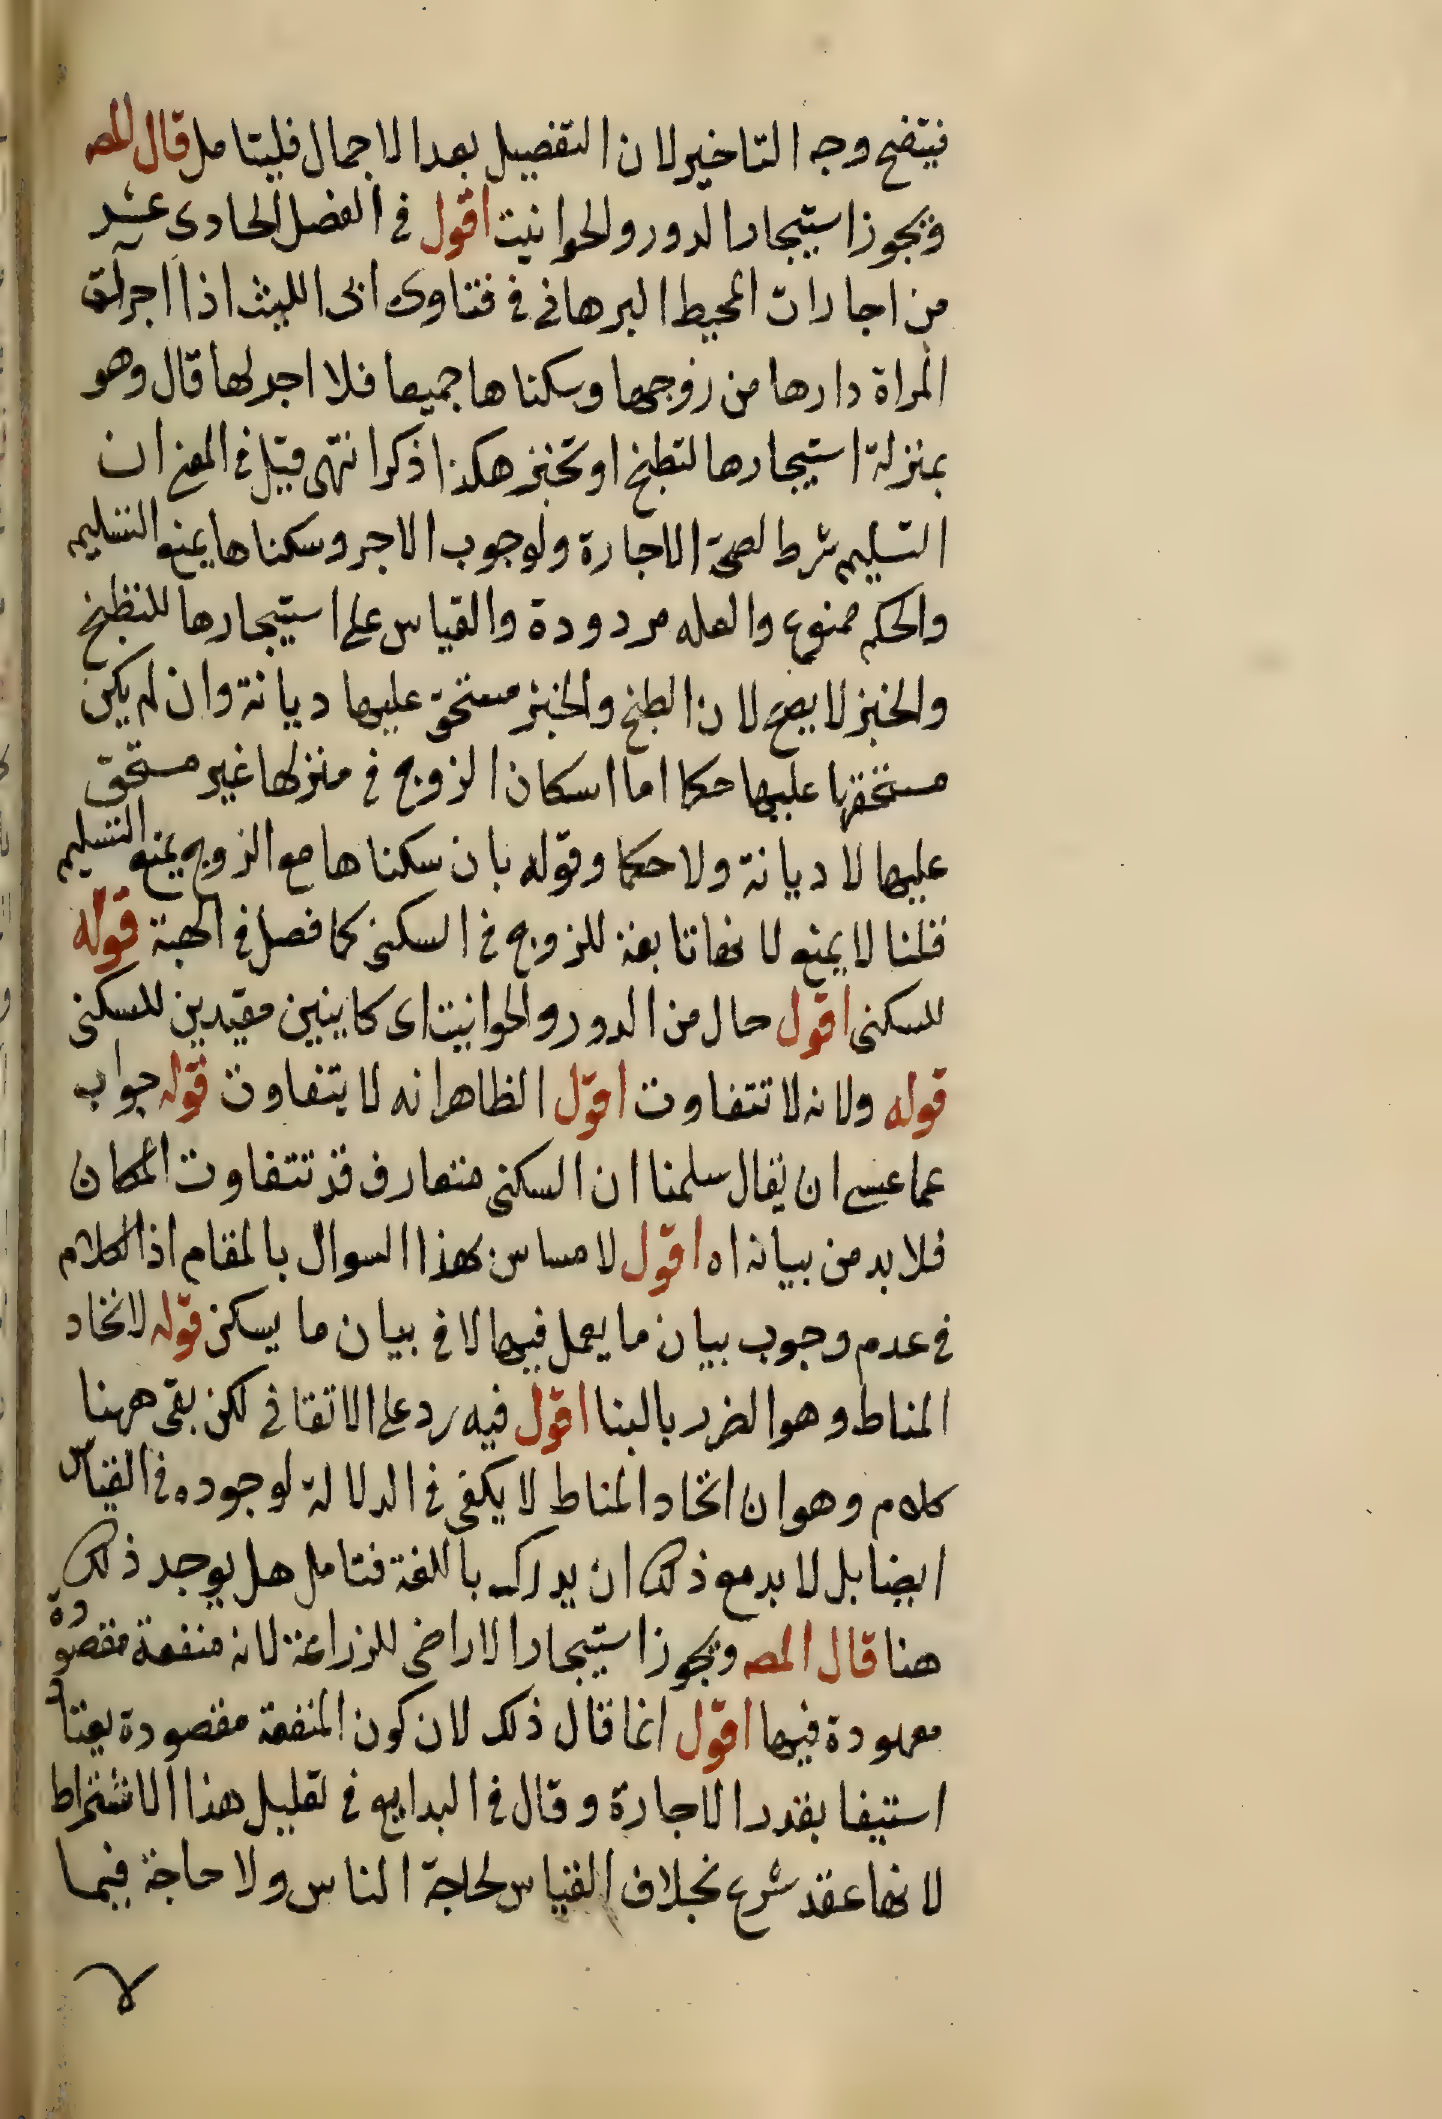 فيتضح وجه التاخير لان التفصيل بعد الاجمال فليتامل قال المص
ويجوز استيجار الدور والحوانيت اقول في الفصل الحادى عشر
من اجارات المحيط البرهانى فى فتاوى ابى الليث اذا اجرت
المراة دارها من زوجها وسكناها جميعا فلا اجر لها قال وهو
بمنزلة استيجارها لتطبخ او تخبز هكذا ذكر انتهى قيل فى المنح ان
التسليم شرط لصحة الاجارة ولوجوب الاجر وسكناها يمنع التسليم
والحكم ممنوع والعله مردودة والقياس على استيجارها للتطبخ
والخبز لا يصح لان الطبخ والخبز مستحق عليها ديانة وان لم يكن
مستحقها عليها حكما اما اسكان الزوج فى منزلها غير مستحق
عليها لا ديانة ولا حكما وقوله بان سكناها مع الزوج يمنع التسليم
قلنا لا يمنع لانها تابعة للزوج فى السكنى كما فصل فى الهبة قوله
للسكنى اقول حال من الدور والحوانيت اى كاينين مقيدين للسكنى
قوله ولانه لا تتفاوت اقول الظاهر انه لا يتفاوت قوله جواب
عما عسى ان يقال سلمنا ان السكنى متعارف قد تتفاوت المكان
فلا بد من بيانه اه اقول لا مساس لهذا السوال بالمقام اذ الكلام
فى عدم وجوب بيان ما يعمل فيها لا فى بيان ما يسكن قوله لاتحاد
المناط وهو الضرر بالبنا اقول فيه رد على الاتقانى لكن بقى ههنا
كلام وهو ان اتحاد المناط لا يكفى فى الدلالة لوجوده فى القياس
ايضا بل لا بد مع ذلك ان يدرك باللغة فتامل هل يوجد ذلك
هنا قال المص ويجوز استيجار الاراضى للزراعة لانه منفعة مقصودة
معهودة فيها اقول انما قال ذلك لان كون المنفعة مقصودة يعتا
استيفا بقدر الاجارة وقال فى البدايع فى تعليل هذا الاشتراط
لانها عقد شرع بخلاف القياس لحاجة الناس ولا حاجة فيما
لا